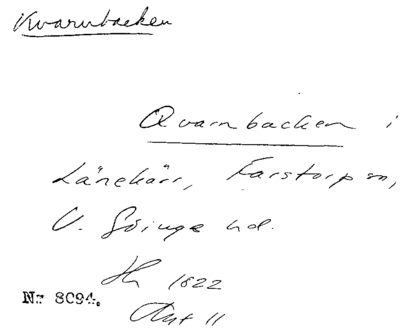 Kvarnbacken
Qvarnbacken i
Lånekärr, Farstorp sn,
V. Göinge hd.
Hh 1822
Akt 11
Nr 8094.